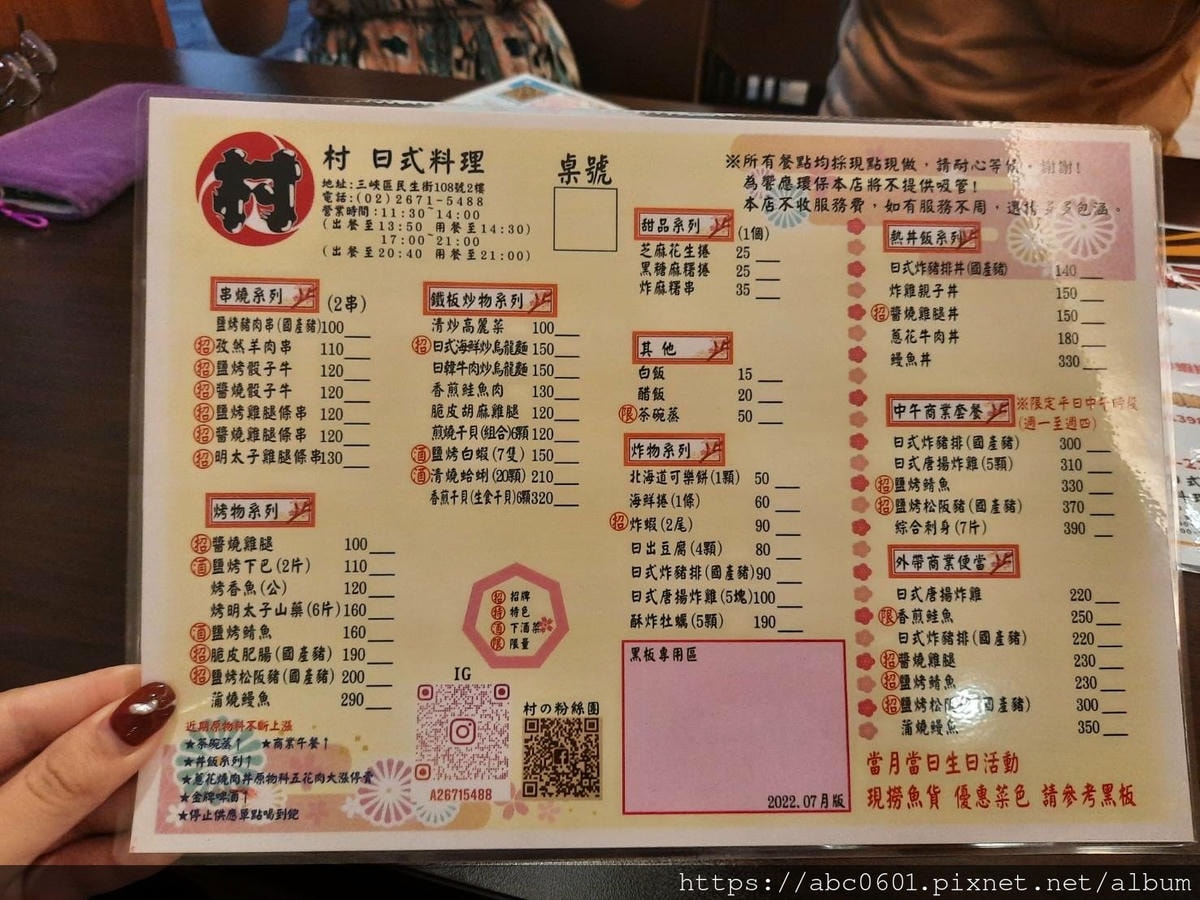 村
村 日式料理
地址:三峽區民生街108號2樓
電話:(02)2671-5488
營業時間:11:30~14:00
(出餐至13:50 用餐至14:30)
17:00~21:00
(出餐至20:40 用餐至21:00)
桌號
※所有餐點均採現點現做，請耐心等候，謝謝!
為響應環保本店將不提供吸管!
本店不收服務費，如有服務不周，還請多多包涵。
串燒系列 (2串)
鹽烤豬肉串(國產豬)100
招 孜然羊肉串 110
招 鹽烤骰子牛 120
招 醬燒骰子牛 120
招 鹽烤雞腿條串 120
招 醬燒雞腿條串 120
招 明太子雞腿條串130
烤物系列
招 醬燒雞腿 100
酒 鹽烤下巴(2片) 110
烤香魚(公) 120
烤明太子山藥(6片)160
酒 鹽烤鯖魚 160
招 脆皮肥腸(國產豬) 190
招 鹽烤松阪豬(國產豬) 200
蒲燒鰻魚 290
近期原物料不斷上漲
★茶碗蒸↑ ★商業午餐↑
★丼飯系列↑
★蔥花燒肉丼原物料五花肉大漲停賣
★金牌啤酒↑
★停止供應單點喝到飽
鐵板炒物系列
清炒高麗菜 100
招 日式海鮮炒烏龍麵 150
日韓牛肉炒烏龍麵 150
香煎鮭魚肉 130
脆皮胡麻雞腿 120
煎燒干貝(組合)6顆 120
酒 鹽烤白蝦(7隻) 150
酒 清燒蛤蜊(20顆) 210
香煎干貝(生食干貝)6顆320
招 招牌
特 特色
酒 下酒菜
限 限量
IG
A26715488
村の粉絲團
甜品系列 (1個)
芝麻花生捲 25
黑糖麻糬捲 25
炸麻糬串 35
其他
白飯 15
醋飯 20
限 茶碗蒸 50
炸物系列
北海道可樂餅(1顆) 50
海鮮捲(1條) 60
招 炸蝦(2尾) 90
日出豆腐(4顆) 80
日式炸豬排(國產豬)90
日式唐揚炸雞(5塊)100
酥炸牡蠣(5顆) 190
黑板專用區
2022.07月版
熱丼飯系列
日式炸豬排丼(國產豬) 140
炸雞親子丼 150
招 醬燒雞腿丼 150
蔥花牛肉丼 180
鰻魚丼 330
中午商業套餐 ※限定平日中午時段
(週一至週四)
日式炸豬排(國產豬) 300
日式唐揚炸雞(5顆) 310
招 鹽烤鯖魚 330
招 鹽烤松阪豬(國產豬) 370
綜合刺身(7片) 390
外帶商業便當
日式唐揚炸雞 220
限 香煎鮭魚 250
日式炸豬排(國產豬) 220
招 醬燒雞腿 230
招 鹽烤鯖魚 230
招 鹽烤松阪豬(國產豬) 300
蒲燒鰻魚 350
當月當日生日活動
現撈魚貨 優惠菜色 請參考黑板
https://abc0601.pixnet.net/album